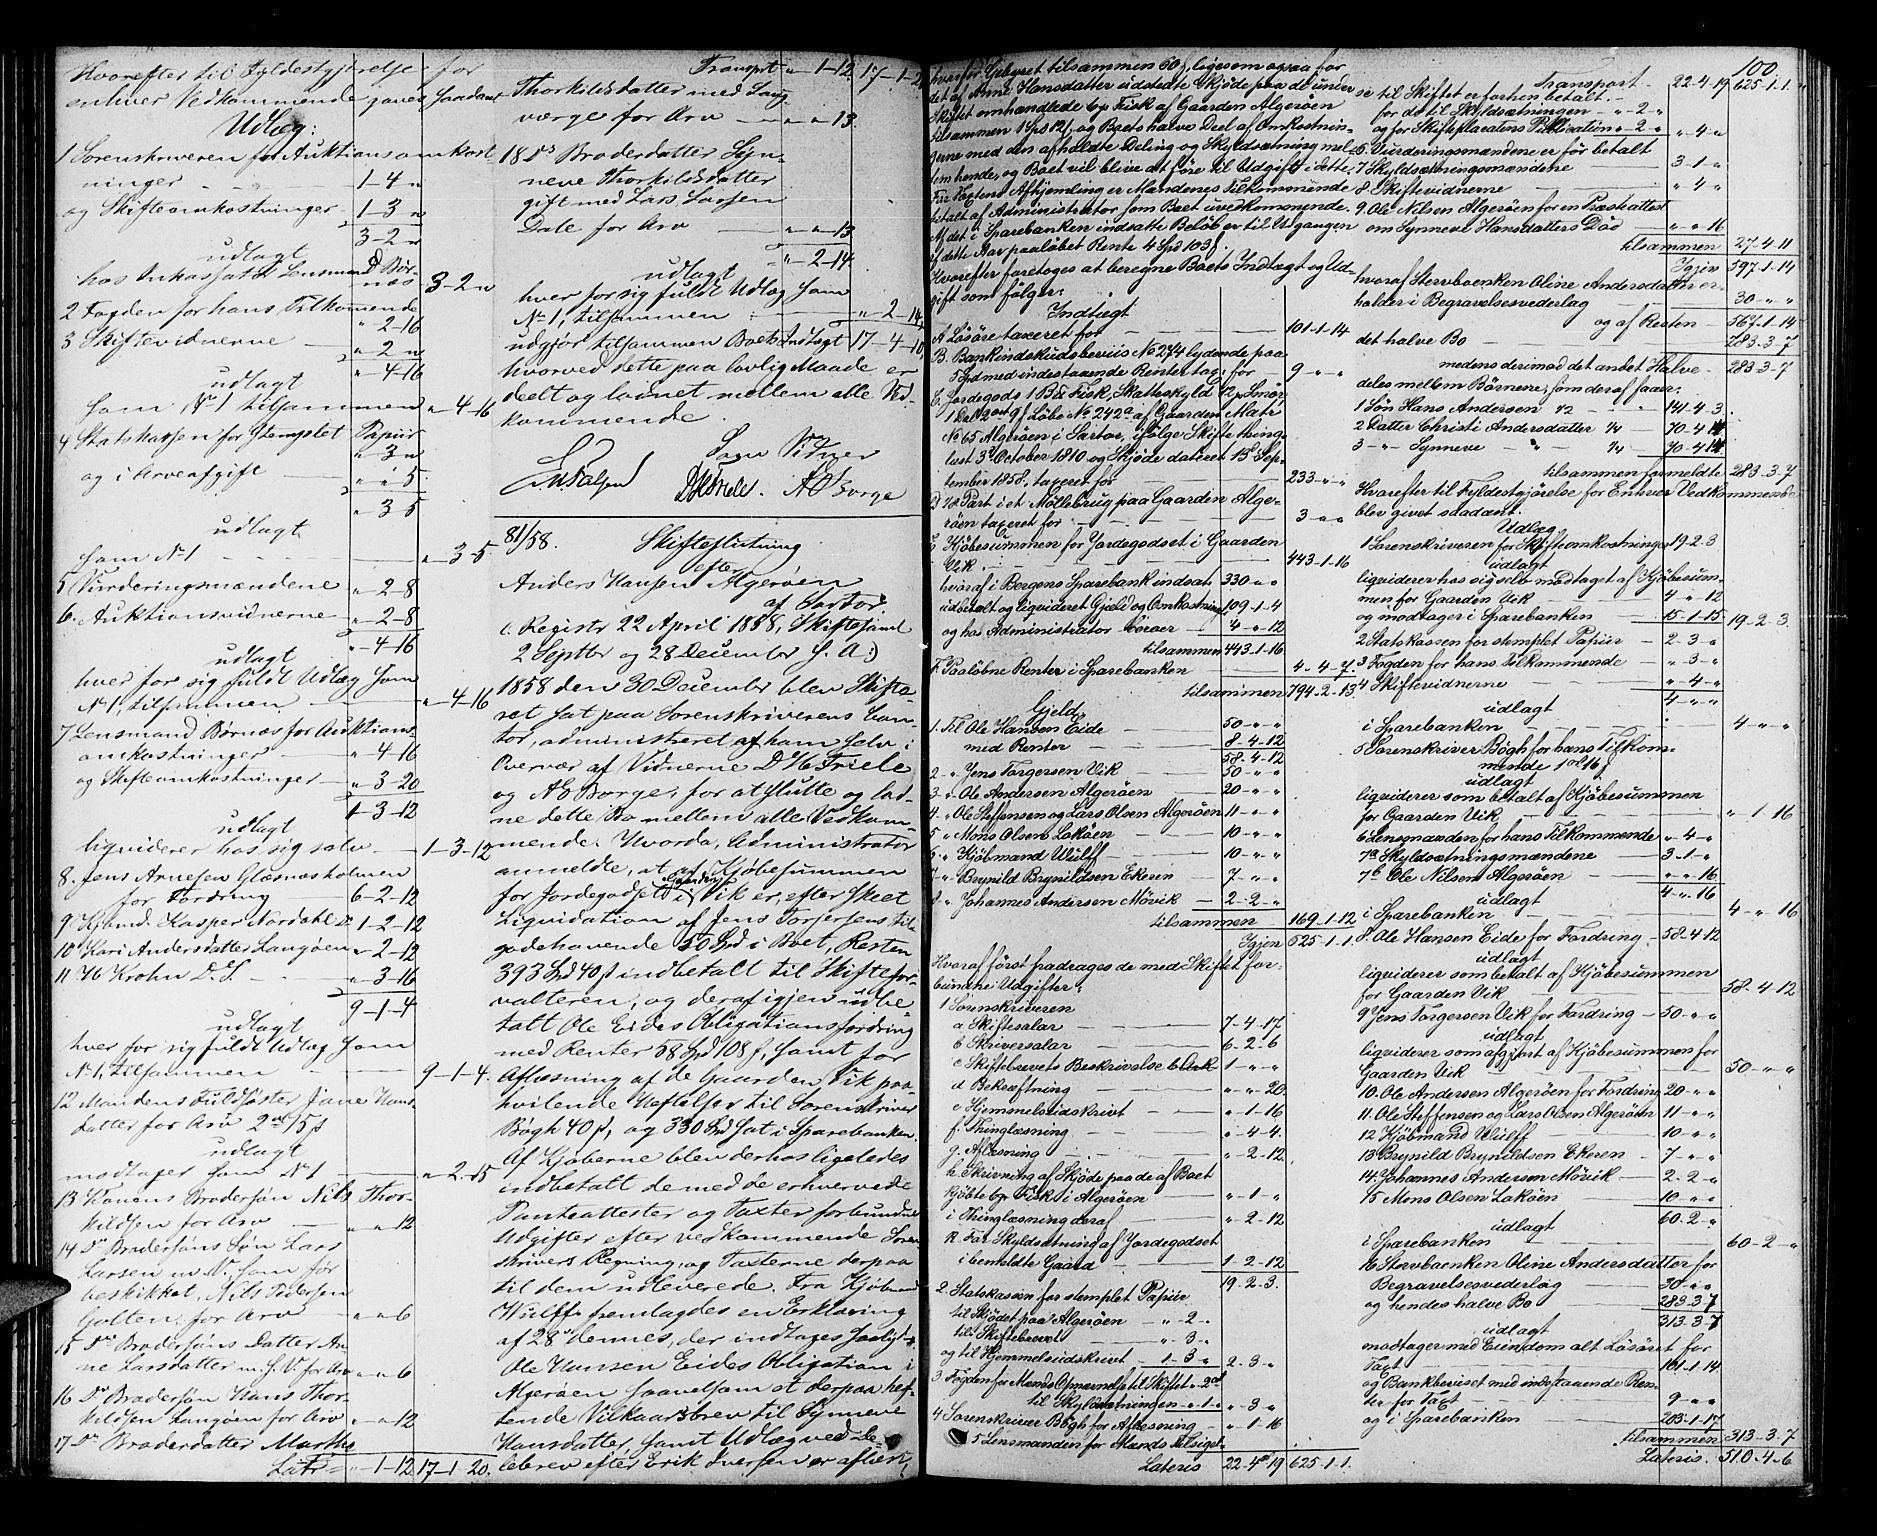 Hvorefter til Fyldestgjørelse for
enhver Vedkommende gaves saadant
Udlæg:
1 Sorenskriveren for Auktionsomkost
ninger 1-4-"
og Skifteomkostninger 1-3-"
3-2-"
udlagt
hos Inkassator Lensmand Bør-
næs 3-2-"
2 Fogden for hans Tilkommende
"-2-16
3 Skiftevidnerne "-2-"
"-4-16
udlagt
som No 1 tilsammen "-4-16
4 Statskassen for Stemplet Papiir
"-3-"
og i Arveafgift "-"-5
"-3-5
udlagt
som No 1 "-3-5
5 Vurderingsmændene "-2-8
6. Auktionsvidnerne "-2-8
"-4-16
udlagt
hver for sig fuldt Udlæg som
No 1, tilsammen "-4-16
7 Lensmand Børnæs for Auktions
omkostninger "-4-16
og Skifteomkostninger "-3-20
1-3-12
udlagt
liqviderer hos sig selv 1-3-12
8. Jens Arnesen Glesnesholmen
for Fordring 6-2-12
9 Kjbmd. Kasper Nordahl 1-2-12
10 Kari Andersdatter Langøen "-2-12
11 Krohn D. S. "-3-16
9-1-4
udlagt
hver for sig fuldt Udlæg som
No 1, tilsammen 9-1-4.
12 Mandens Fuldsøster Jane Hans-
datter for Arv 2 ort 15 ß
udlagt
modtager som No 1 "-2-15
13 Konens Brodersøn Nils Thor-
kildsen for Arv "-"-12
14 Do Brodersøns Søn Lars
Larsen m. V. som før
beskikket, Nils Pedersen
Golten, for Arv "-"-6
15 Do Brodersøns Datter An-
ne Larsdatter m. s. V. for Arv "-"-6
16 Do Brodersøn Hans Thor-
kildsen Langøen for Arv "-"-12
17 Do Broderdatter Marthe
Latr "-1-12 17-1-20.
Transpt "-1-12 17-1-20
Thorkildsdatter med Laug-
værge for Arv "-"-13
18 Do Broderdatter Syn-
neve Thorkildsdatter
gift med Lars Larsen
Dale for Arv "-"-13
"-2-14
udlagt
hver for sig fuldt Udlæg som
No 1, tilsammen "-2-14
udgjør tilsammen Boets Indtægt 17-4-10
hvorved dette paa lovlig Maade er
deelt og lodnet mellem alle Ved-
kommende.
Som Vidner
A O Borge
81/58. Skifteslutning
efter
Anders Hansen Algerøen
af Sartor.
c. Registr 22 April 1858, Skiftesaml
2 Septbr og 28 December s. A:)
1858 den 30 December blev Skifte-
ret sat paa Sorenskriverens Con-
tor, administreret af ham selv i
Overvær af Vidnerne D. H. Friele
og A O Borge, for at slutte og lod-
ne dette Bo mellem alle Vedkom-
mende. Hvorda, Administrator
anmeldte, at af Kjøbesummen
for Jordegodset i Gaarden Vik er, efter skeet
Liqvidation af Jens Torjersens til-
godehavende 50 Spd i Boet, Resten
393 Spd 40 ß indbetalt til Skiftefor-
valteren, og deraf igjen udbe-
talt Ole Eides Obligationsfordring
med Renter 58 Spd 108 ß, samt for
Aflæsning af de Gaarden Vik paa-
hvilende Heftelser til Sorenskriver
Bøgh 40 ß, og 330 Spd sat i Sparebanken.
Af Kjøberne blev derhos ligeledes
indbetalt de med de erhvervede
Panteattester og Taxter forbundne
Udgifter efter vedkommende Soren-
skrivers Regning, og Taxterne derpaa
til dem udleverede. Fra Kjøbmand
Wulff fremlagdes en Erklæring
af 28 dennes, der indtages saalydende.
Ole Hansen Eides Obligation i
Algerøen saavelsom et derpaa hef-
tende Vilkaarsbrev til Synneve
Hansdatter, samt Udlæg ved De-
lebrev efter Erik Iversen er aflæst,
100.
hvorfor Gebyret tilsammen 60 ß, ligesom ogsaa for
det af Anne Hansdatter udstedte Skjøde paa de under
Skiftet omhandlede Fisk af Gaarden Algerøen
tilsammen 1 Spd 12 ß, og Boets halve Deel af Omkostnin-
gerne med den afholdte Deling og Skyldsætning mel-
lem hende, og Boet vil blive at føre til Udgift i dette.
For Taxtens Afhjemling er Mændenes Tilkommende
betalt af Administrator som Boet uvedkommende.
Af det i Sparebanken indsatte Beløb er til Udgangen
af dette Aar paaløbet Rente 4 Spd 103 ß.
Hvorefter foretoges at beregne Boets Indtægt og Ud-
gift som følger:
Indtægt
A Løsøre taxeret for 101-1-14
B. Bankindskudsbeviis No 274 lydende paa
5 Spd med indestaaende Renter tax: for 9-"-"
C. Jordegods 1 B Fisk, Skatteskyld
Løbe No 242a af Gaarden Matr
No 65 Algerøen i Sartor, ifølge Skifte thing-
læst 3 October 1810 og Skjøde dateret 15 Sep-
tember 1858, taxeret for 233-"-"
D 1/2 Part i et Møllebrug paa Gaarden Alge-
røen taxeret for 3-"-"
E Kjøbesummen for Jordegodset i Gaarden
Vik 443-1-16
hvoraf i Bergens Sparebank indsat 330-"-"
udbetalt og liqvideret Gjeld og Omkostning 109-1-4
og hos Administrator beroer 4-"-12
tilsammen 443-1-16
F. Paaløbne Renter i Sparebanken 4-4-7.
tilsammen 794-2-13
Gjeld
1. Til Ole Hansen Eide 50-"-"
med Renter 8-4-12
58-4-12
2 " Jens Torgersen Vik 50-"-"
3 " Ole Andersen Algerøen 20-"-"
4 " Ole Steffensen og Lars Olsen Algerøen 11-"-"
5 " Mons Olsen Lokøen 10-"-"
6 " Kjøbmand Wulff 10-"-"
7 " Brynild Brynildsen Ekeren 7-"-"
8 " Johannes Andersen Møvik 2-2-"
tilsammen 169-1-12
Igjen 625-1-1.
Hvoraf først fradrages de med Skiftet for-
bundne Udgifter:
1 Sorenskriveren
a Skiftesalar 7-4-17
b Skriversalar 6-2-6
c Skiftebrevets Beskrivelse 6 Ark 1-"-"
d Bekræftning "-"-20
e Hjemmelsudskrivt "-1-16
f Thinglæsning "-4-4.
g. Aflæsning "-2-12
h. Skrivning af Skjøde paa de af Boet
kjøbte Fisk i Algerøen "-1-"
i Thinglæsning deraf "-2-12
k For Skyldsætning af Jordegodset
i bemeldte Gaard 1-2-12
19-2-3.
2 Statskassen for stemplet Papiir
til Skjødet paa Algerøen "-2-"
til Skiftebrevet "-3-"
og til Hjemmelsudskrivt 1-3-" 2-3-"
3 Fogden for Mænds Opnævnelse til Skiftet "-2-"
til Skyldsætningen "-1-" "-3-"
4 Sorenskriver Bøgh for Aflæsning "-1-16
5 Lensmanden for Mænds Tilsigel-
Lateris 22-4-19 625-1-1.
Transport 22-4-19 625-1-1.
se til Skiftet er forhen betalt.
for do til Skyldsætningen "-2-"
og for Skifteplacatens Publication "-2-" "-4-"
6 Vurderingsmændene er før betalt
7 Skyldsætningsmændene 3-1-"
8. Skiftevidnerne "-4-"
9. Ole Nilsen Algerøen for en Præsteattest
om Synneve Hansdatters Død "-"-16
tilsammen 27-4-11
Igjen 597-1-14
hvoraf Stervboenken Oline Andersdatter er-
holder i Begravelsesvederlag 30-"-"
og af Resten 567-1-14
det halve Bo 283-3-7
medens derimod det andet Halve 283-3-7
deles mellem Børnene, som deraf faaer:
1 Søn Hans Andersen 1/2 141-4-3
2 Datter Christi Andersdatter 1/4 70-4-14
3 -"- Synneve " 1/4 70-4-14
tilsammen formeldte 283-3-7
Hvorefter til Fyldestgjørelse for Enhver Vedkommende
blev givet saadant:
Udlæg
1 Sorenskriveren for Skifteomkostninger 19-2-3
udlagt
liqviderer hos sig selv modtaget af Kjøbesum-
men for Gaarden Vik 4-"-12
og modtager i Sparebanken 15-1-15 19-2-3.
2 Statskassen for stemplet Papiir 2-3-"
3 Fogden for hans Tilkommende "-3-"
4 Skiftevidnerne "-4-"
4-"-"
udlagt
i Sparebanken 4-"-"
5 Sorenskriver Bøgh for hans Tilkom-
mende 1 ort 16 ß
udlagt
liqviderer som betalt af Kjøbesummen
for Gaarden Vik "-1-16
6 Lensmanden for hans Tilkommende "-4-"
7a Skyldsætningsmændene 3-1-"
7b Ole Nilsen Algerøen "-"-16
4-"-16
udlagt
i Sparebanken 4-"-16
8. Ole Hansen Eide for Fordring 58-4-12
udlagt
liqviderer som betalt af Kjøbesummen
for Gaarden Vik 58-4-12
9 Jens Torgersen Vik for Fordring 50-"-"
udlagt
liqviderer som afgjort af Kjøbesummen for
Gaarden Vik 50-"-"
10. Ole Andersen Algerøen for Fordring 20-"-"
11. Ole Steffensen og Lars Olsen Algerøen 11-"-"
12 Kjøbmand Wulff 10-"-"
13 Brynild Brynildsen Ekeren 7-"-"
14. Johannes Andersen Møvik 2-2-"
15 Mons Olsen Lokøen 10-"-"
60-2-"
udlagt
i Sparebanken 60-2-"
16 Stervboenken Oline Andersdatter for
Begravelsesvederlag 30-"-"
og hendes halve Bo 283-3-7
313-3-7
udlagt
modtager med Eiendom alt Løsøret for
Taxt 101-1-14
og Bankbeviset med indestaaende Ren-
ter for Taxt 9-"-"
og i Sparebanken 203-1-17
tilsammen 313-3-7
Lateris 510-4-6